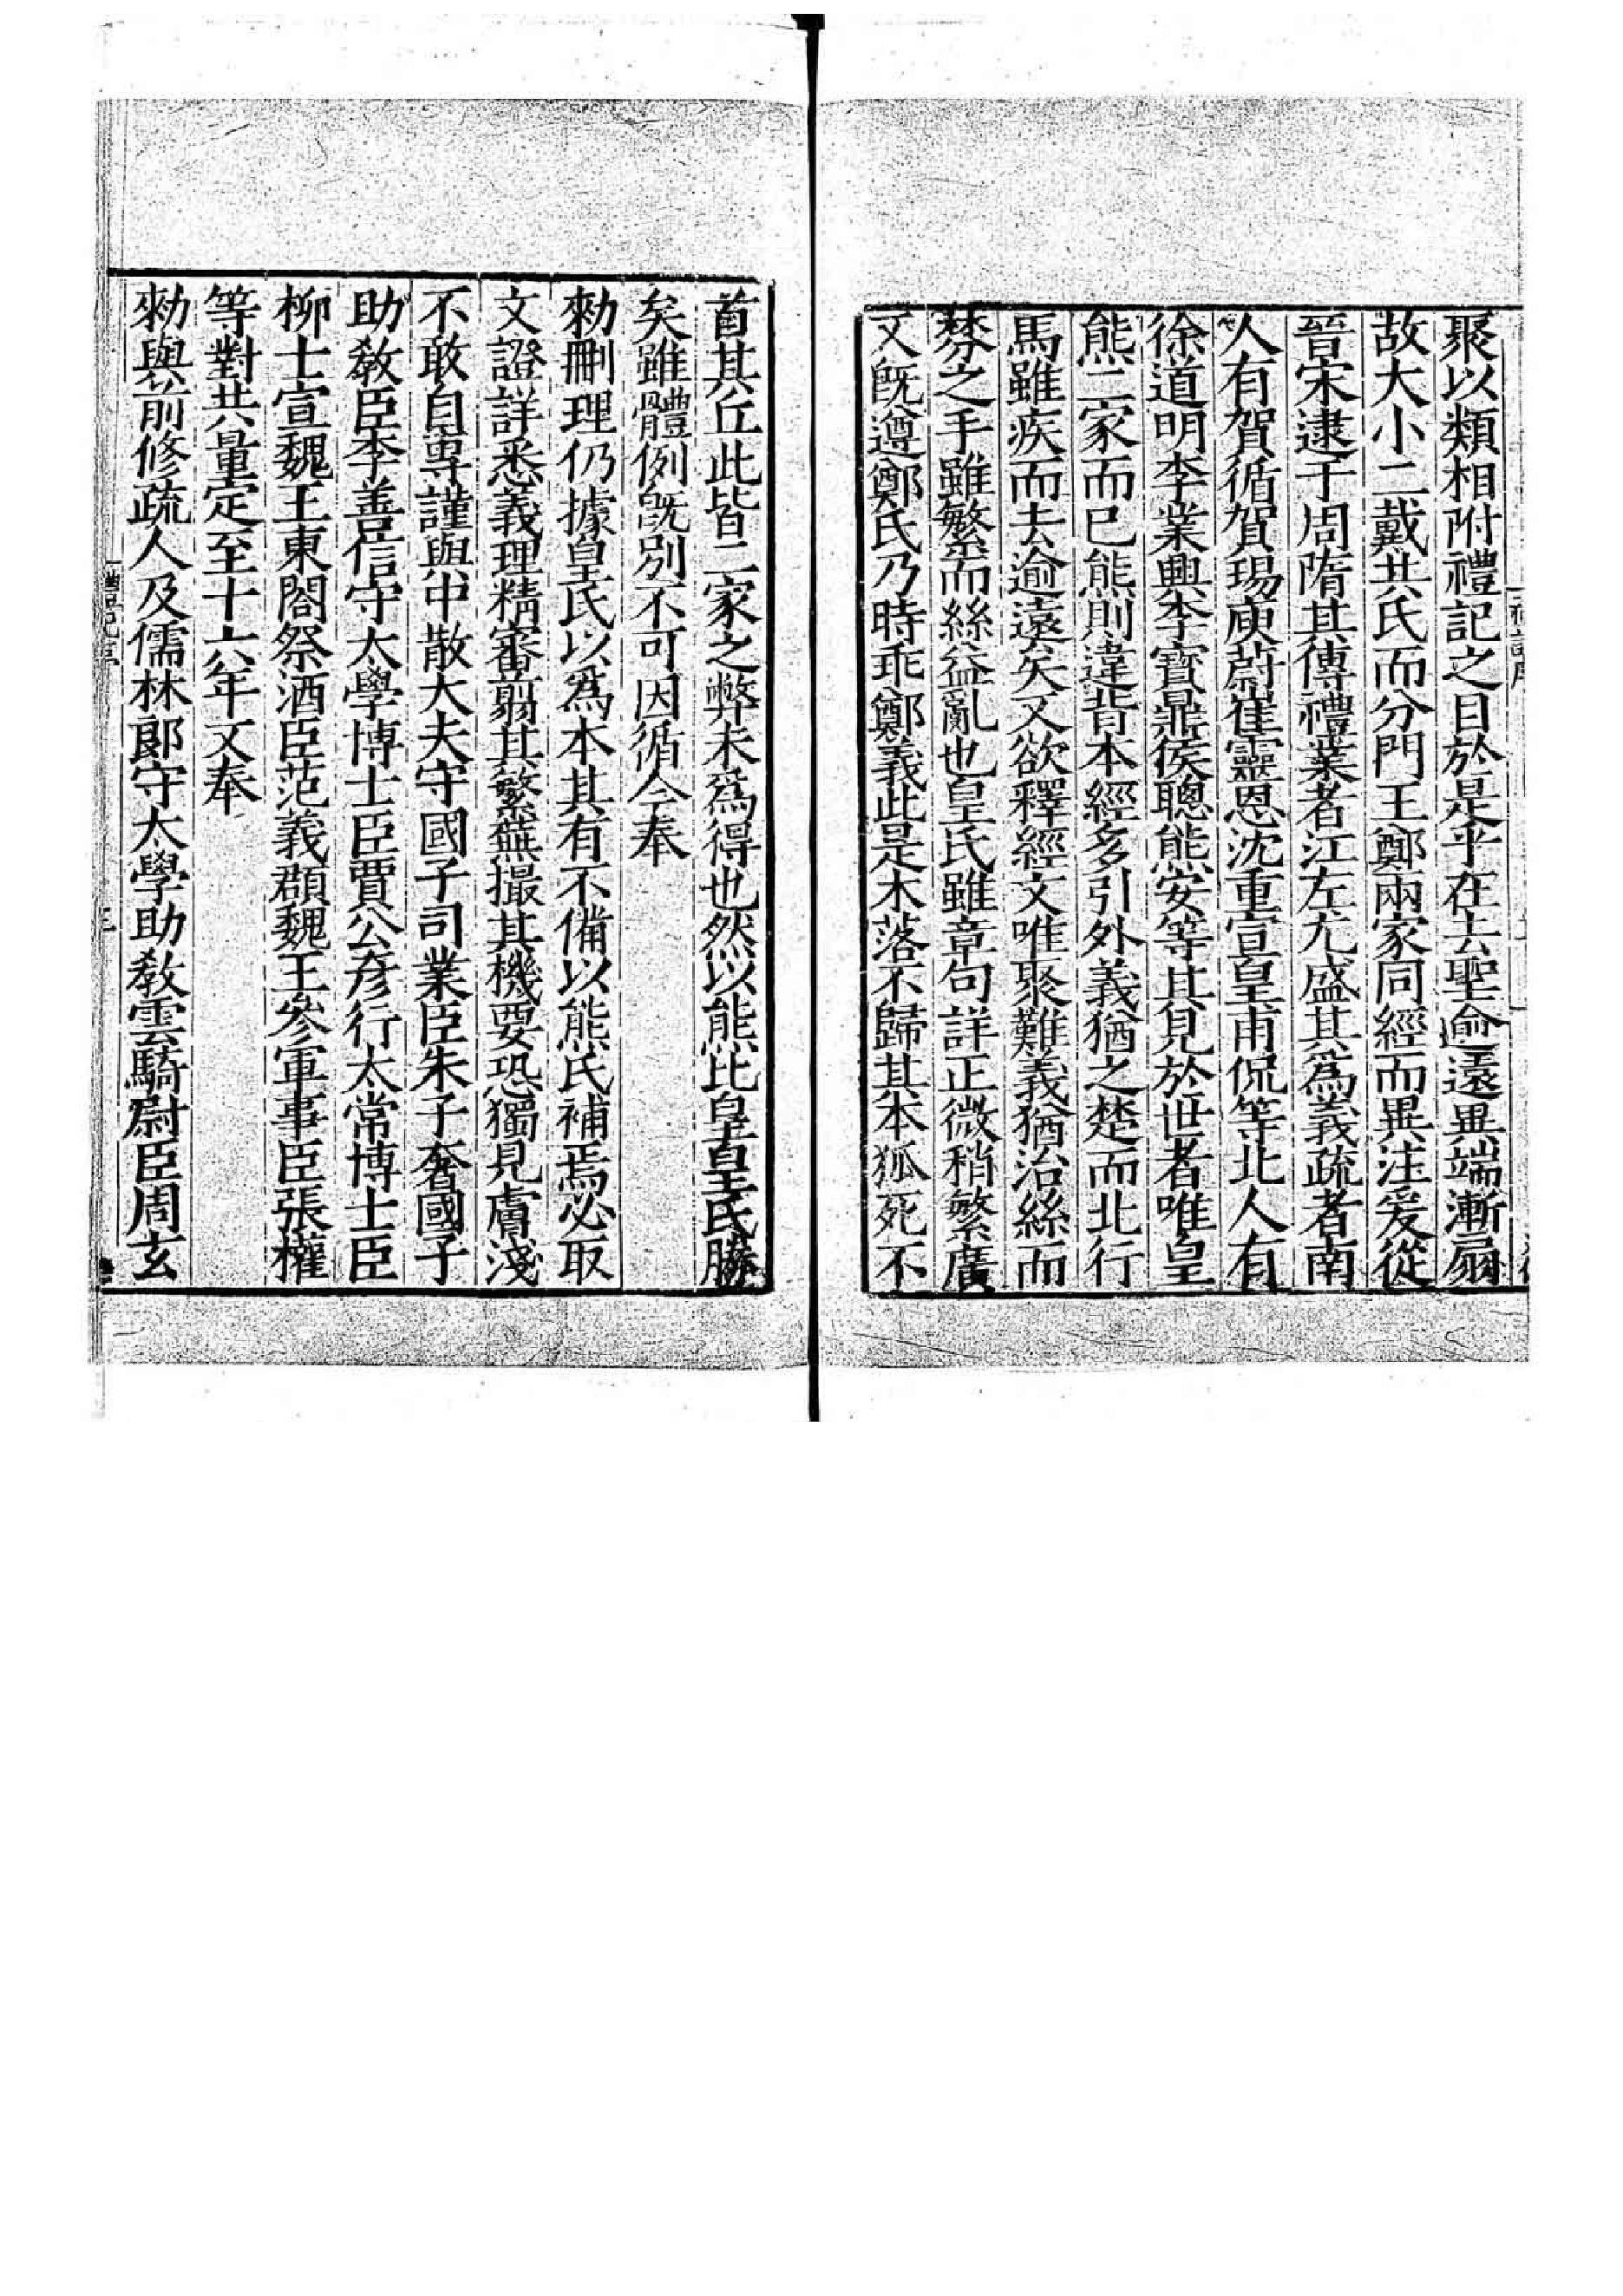 聚以類相附禮記之目於是乎在去聖逾遠異端漸扇
故大小二戴共氏而分門王鄭兩家同經而異注爰從
晉宋逮于周隋其傳禮業者江左尤盛其爲義疏者南
人有賀循賀瑒庾蔚崔靈恩沈重宣皇甫侃等北人有
徐道明李業興李寶鼎侯聰熊安等其見於世者唯皇
熊二家而已熊則違背本經多引外義猶之楚而北行
馬雖疾而去逾遠矣又欲釋經文唯聚難義猶治絲而
棼之手雖繁而絲益亂也皇氏雖章句詳正微稍繁廣
又旣遵鄭氏乃時乖鄭義此是木落不歸其本狐死不
首其丘此皆二家之弊未爲得也然以熊比皇皇氏勝
矣雖體例旣別不可因循今奉
勑刪理仍據皇氏以爲本其有不備以熊氏補焉必取
文證詳悉義理精審翦其繁蕪撮其機要恐獨見膚淺
不敢自專謹與中散大夫守國子司業臣朱子奢國子
助敎臣李善信守太學博士臣賈公彥行太常博士臣
柳士宣魏王東閤祭酒臣范義頵魏王參軍事臣張權
等對共量定至十六年又奉
勑與前修疏人及儒林郞守太學助敎雲騎尉臣周玄